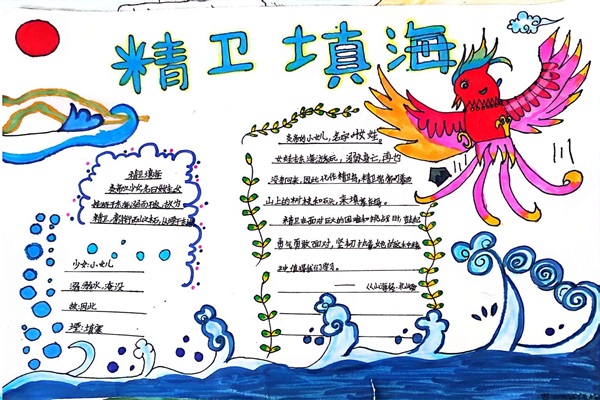 精卫填海
精卫填海
炎帝之少女名曰女娃,女
娃游于东海,溺而不返,故为
精卫,常衔西山之木石,以堙于东海
少女:小女儿
溺:溺水,淹没
故:因此
堙:填塞
炎帝的小女儿,名字叫女娃。
女娃去东海游玩,溺水身亡,再也
没有回来,因此化作精卫鸟,精卫常常叼着西
山上的树枝和石头,来填塞东海。
精卫在面对巨大的困难和挑战时,
勇气勇敢面对,坚韧
值得我们学习。
——《山海经·北山经》